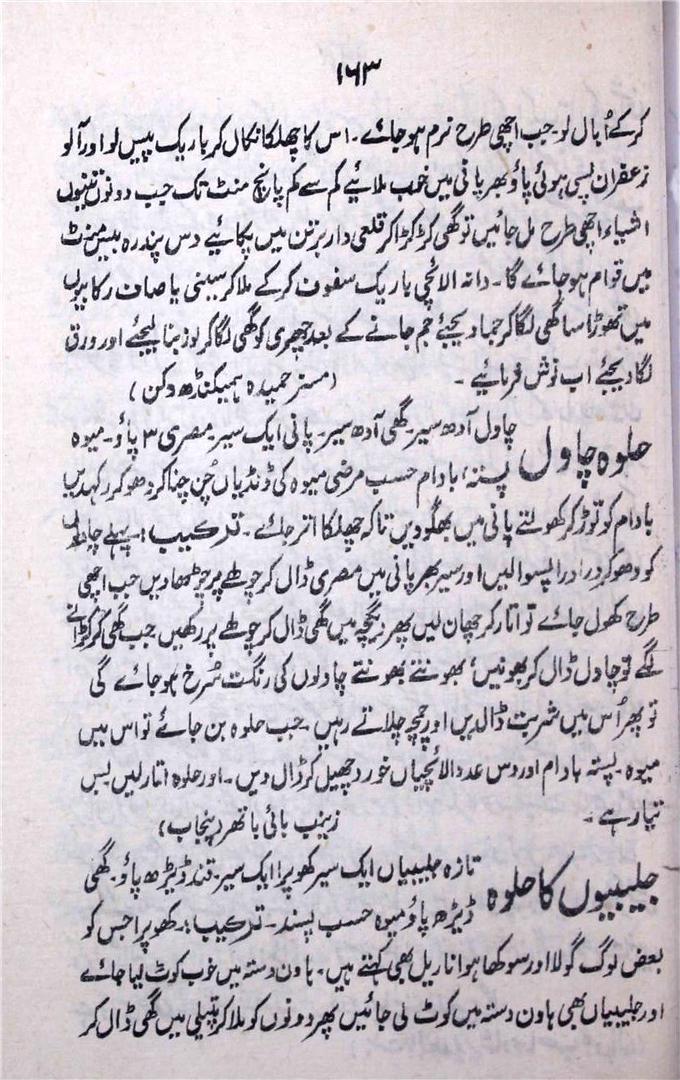 ۱۶۳
کرکے اُبال لو۔ جب اچھی طرح نرم ہوجائے۔ اس کا چھلکا نکال کر باریک پیس لو اور آلو
زعفران پسی ہوئی پاؤ بھر پانی میں خوب ملائیے کم سے کم پانچ منٹ تک جب دونوں تینوں
اشیاء اچھی طرح مل جائیں تو گھی کڑکڑا کر قلعی دار برتن میں پکائیے دس پندرہ بیس منٹ
میں قوام ہوجائے گا۔ دانہ الائچی باریک سفوف کرکے ملا کر سینی یا صاف رکابیوں
میں تھوڑا سا گھی لگا کر جما دیجئے جم جانے کے بعد چھری کو گھی لگا کر لوز بنا لیجئے اور ورق
لگا دیجئے اب نوش فرمائیے۔ (مسز حمیدہ ہمیکنڈہ دکن)
حلوہ چاول چاول آدھ سیر۔ گھی آدھ سیر۔ پانی ایک سیر۔ مصری ۳ پاؤ۔ میوہ
پستہ، بادام حسب مرضی میوہ کی ڈنڈیاں چُن چنا کر دھو کر رکھدیں
بادام کو توڑ کر کھولتے پانی میں بھگو دیں تاکہ چھلکا اتر جائے۔ ترکیب:۔ پہلے چاول
کو دھو کر دردرا پسوا لیں اور سیر بھر پانی میں مصری ڈال کر چولہے پر چڑھا دیں جب اچھی
طرح کھول جائے تو اتار کر چھان لیں پھر دیگچہ میں گھی ڈال کر چولہے پر رکھیں جب گھی کڑکڑانے
لگے تو چاول ڈال کر بھونیں، بھونتے بھونتے چاولوں کی رنگت سُرخ ہوجائے گی
تو پھر اُس میں شربت ڈالدیں اور چمچہ چلاتے رہیں۔ جب حلوہ بن جائے تو اس میں
میوہ۔ پستہ بادام اور دس عدد الائچیاں خورد چھیل کر ڈال دیں۔ اور حلوہ اتار لیں بس
تیار ہے۔ زینب بائی ہاتھر (پنجاب)
جلیبیوں کا حلوہ تازہ جلیبیاں ایک سیر کھوپرا ایک سیر۔ قند ڈیڑھ پاؤ۔ گھی
ڈیڑھ پاؤ میوہ حسب پسند۔ ترکیب:۔ کھوپرا جس کو
بعض لوگ گولا اور سوکھا ہوا ناریل بھی کہتے ہیں۔ ہاون دستہ میں خوب کوٹ لیا جائے
اور جلیبیاں بھی ہاون دستہ میں کوٹ لی جائیں پھر دونوں کو ملا کر پتیلی میں گھی ڈال کر